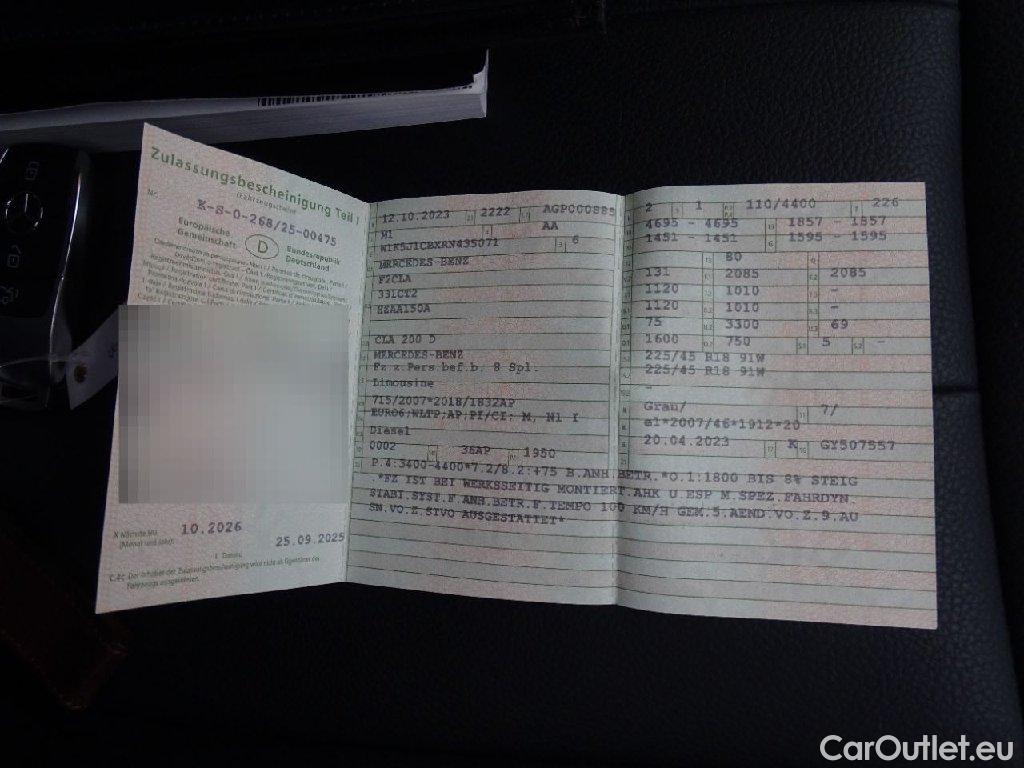 Zulassungsbescheinigung Teil I
(Fahrzeugschein)
Nr.
K-S-0-268/25-00475
Europäische
Gemeinschaft
D
Bundesrepublik
Deutschland
10.2026
(Monat und Jahr)
25.09.2025
C.4c Der Inhaber der Zulassungsbescheinigung wird nicht als Eigentümer des
Fahrzeugs ausgewiesen.
12.10.2023 2222 AGP000885
M1 AA
W1K5J1CBXRN435071 6
MERCEDES-BENZ
F2CLA
33LCT2
CLA 200 D
MERCEDES-BENZ
Fz.z.Pers.bef.b. 8 Spl.
Limousine
715/2007*2018/1832AP
EURO6;WLTP;AP;PI/CI: M, N1 I
Diesel
0002 36AP 1950
2 1 110/4400 226
4695 - 4695 1857 - 1857
1451 - 1451 1595 - 1595
80
131 2085 2085
1120 1010 -
1120 1010 -
75 3300 69
1600 750 5 -
225/45 R18 91W
225/45 R18 91W
-
Grau/ 7/
e1*2007/46*1912*20
20.04.2023 K GY507557
P.4:3400-4400*7.2/8.2:+75 B.ANH BETR.*O.1:1800 BIS 8% STEIG
.*FZ IST BEI WERKSSEITIG MONTIERT.AHK U.ESP M.SPEZ.FAHRDYN.
STABI.SYST.F.ANH.BETR.F.TEMPO 100 KM/H GEM.5.AEND.VO.Z.9.AU
SN.VO.Z.STVO AUSGESTATTET*
CarOutlet.eu